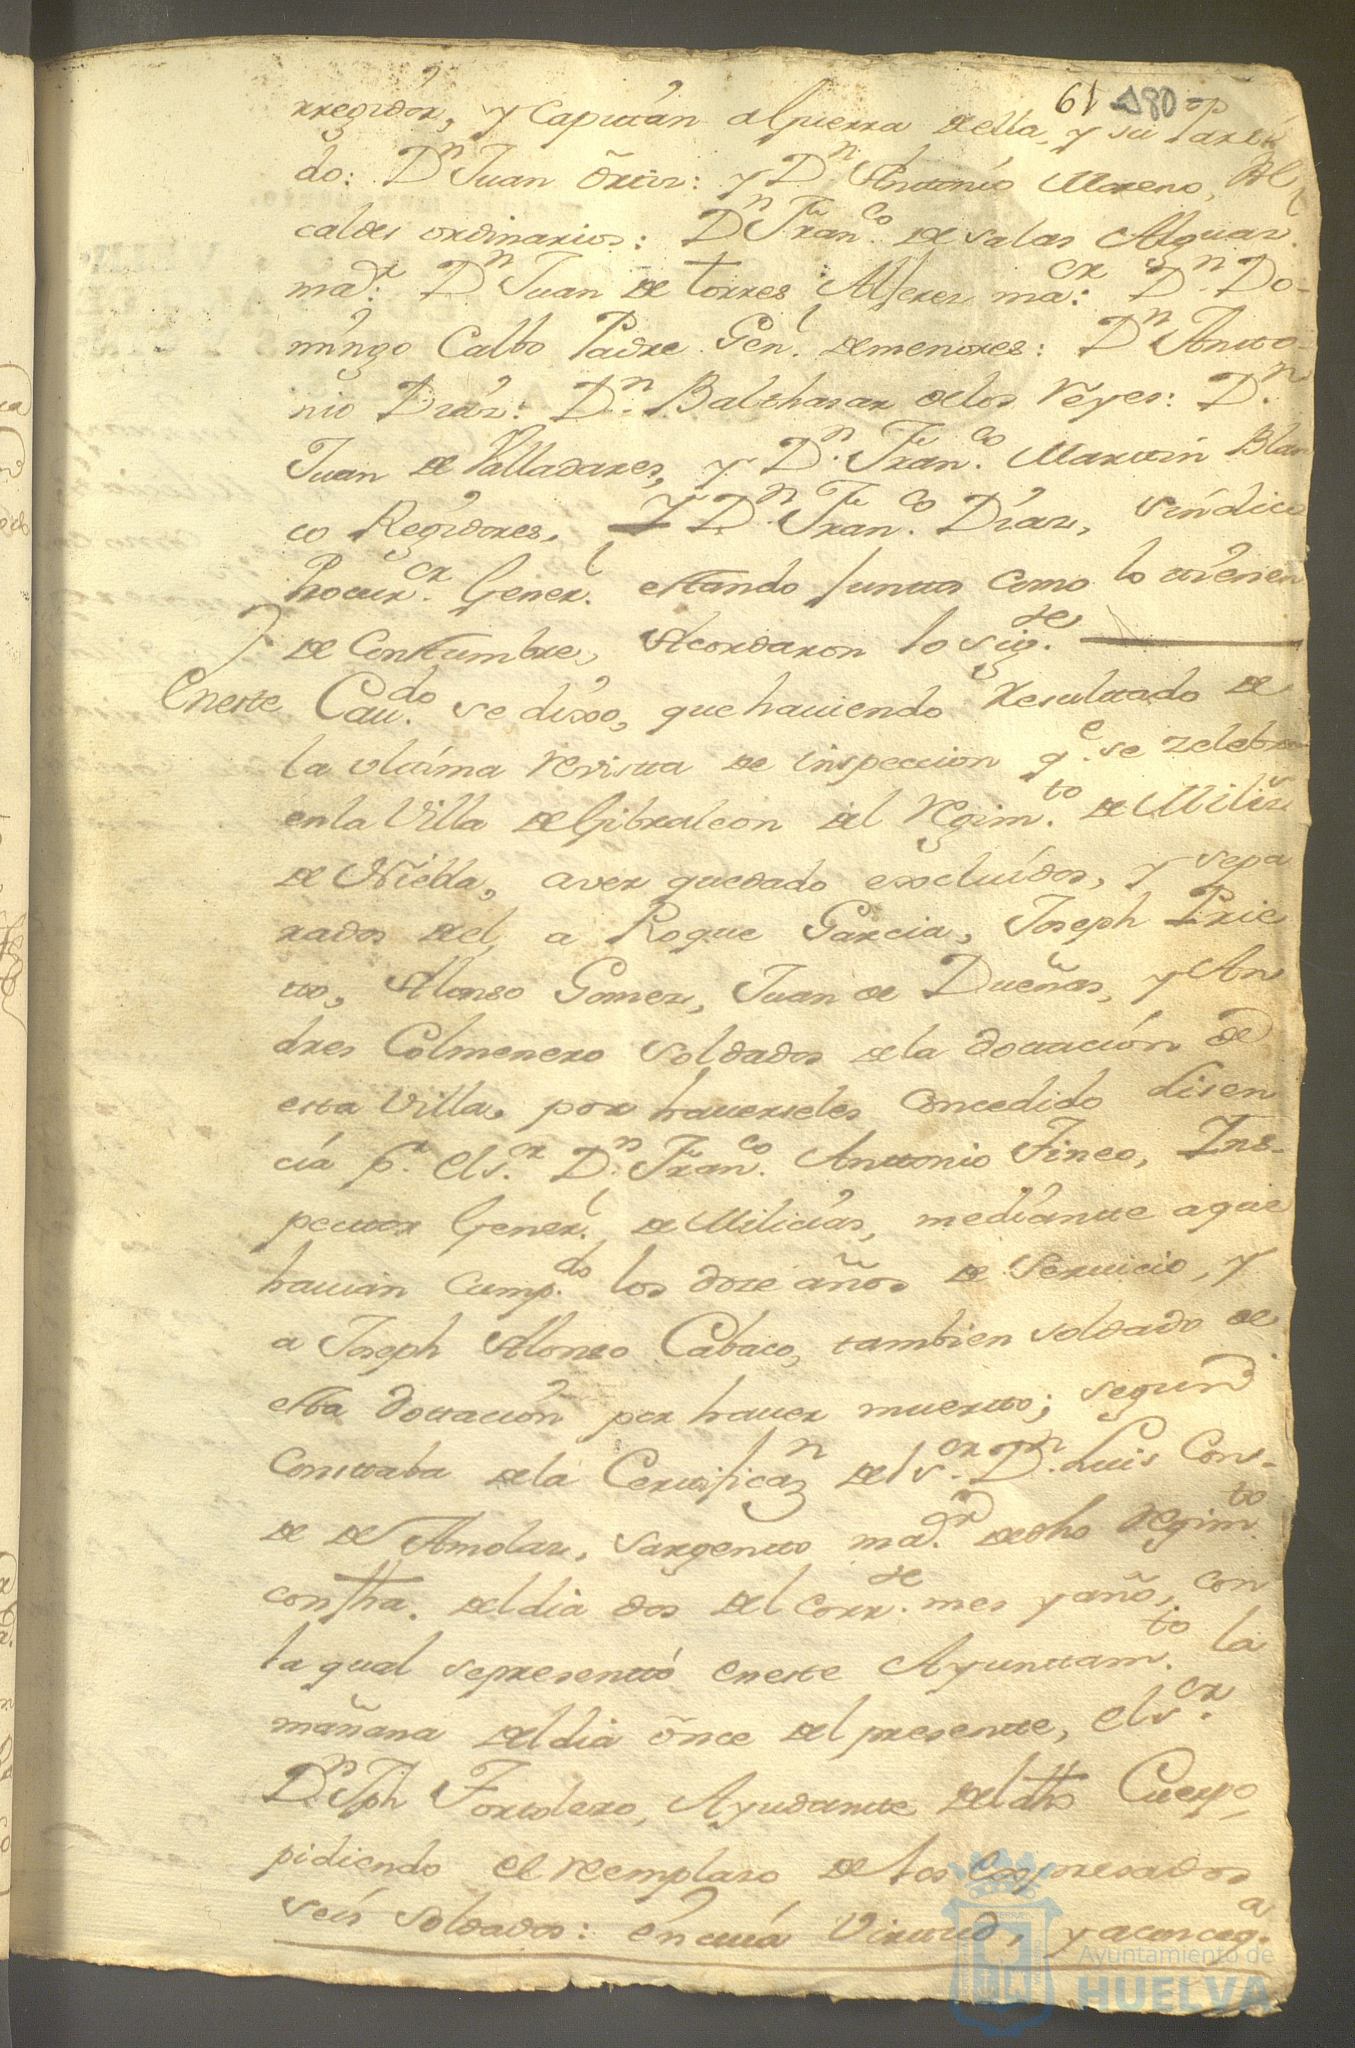 61 180
rregidór, y Capitán aGuerra della, y su Parti
do: Dn Juan Õrtiz: y Dn Antonío Moreno, Al
caldes ordinarios: Dn Franco. de Salas Alguaz.l
mar: Dn Juan de torres Alferez maor: Dn. Do-
míngo Calbo Padre Genl. demenores: Dn Antto-
nio Diáz: Dn. Balthasar delos Reyes: Dn
Juan de Valladares, y Dn. Franco. Marttin Blan
co Regidores. Y Dn. Franco. Díaz, síndico
Procuror. Generl. estando Juntos como lo tiénen
de Costtumbre, Acordaron lo sigte.
Eneste Caudo. se díxo, que haviendo Resulttado de
la ultíma revistta de inspeccion qe. se zelebró
enla Villa deGibraleon del Regimto. de Miliz.s
de Niebla, aver quedado excluídos, y sepa
rados del, a Roque Garcia, Joseph Prie
tto, Alonso Gomez, Juan de Dueñas, y An
dres Colmenero soldados dela dottación de
esta Villa, por haverseles Concedido lisen
cía pr. elSor. Dn. Franco. Anttonio Tineo, Ins-
pecttor Generl. de Milicías, medíantte aque
havian Cumpdo. los doze años de Servicio, y
a Joseph Alonso Cabaco, tambien soldado de
esta dottación por haver muertto; segun
Consttaba dela Certtificazn delSor. Dn. Luis Con-
de de Amolaz, sargentto mar. dedho Regimto.
confha. deldia dos del Corrte. mes y año, con
la qual sepresenttó eneste Ayunttamto. la
mañana deldia õnce del presentte, elSor.
Dn Jph Forttolero, Ayudantte deldho Cuerpo,
pidiendo el reemplazo de los expresados
seís soldados: en cuía Virttud, y aconseqa.
Ayuntamiento de
HUELVA